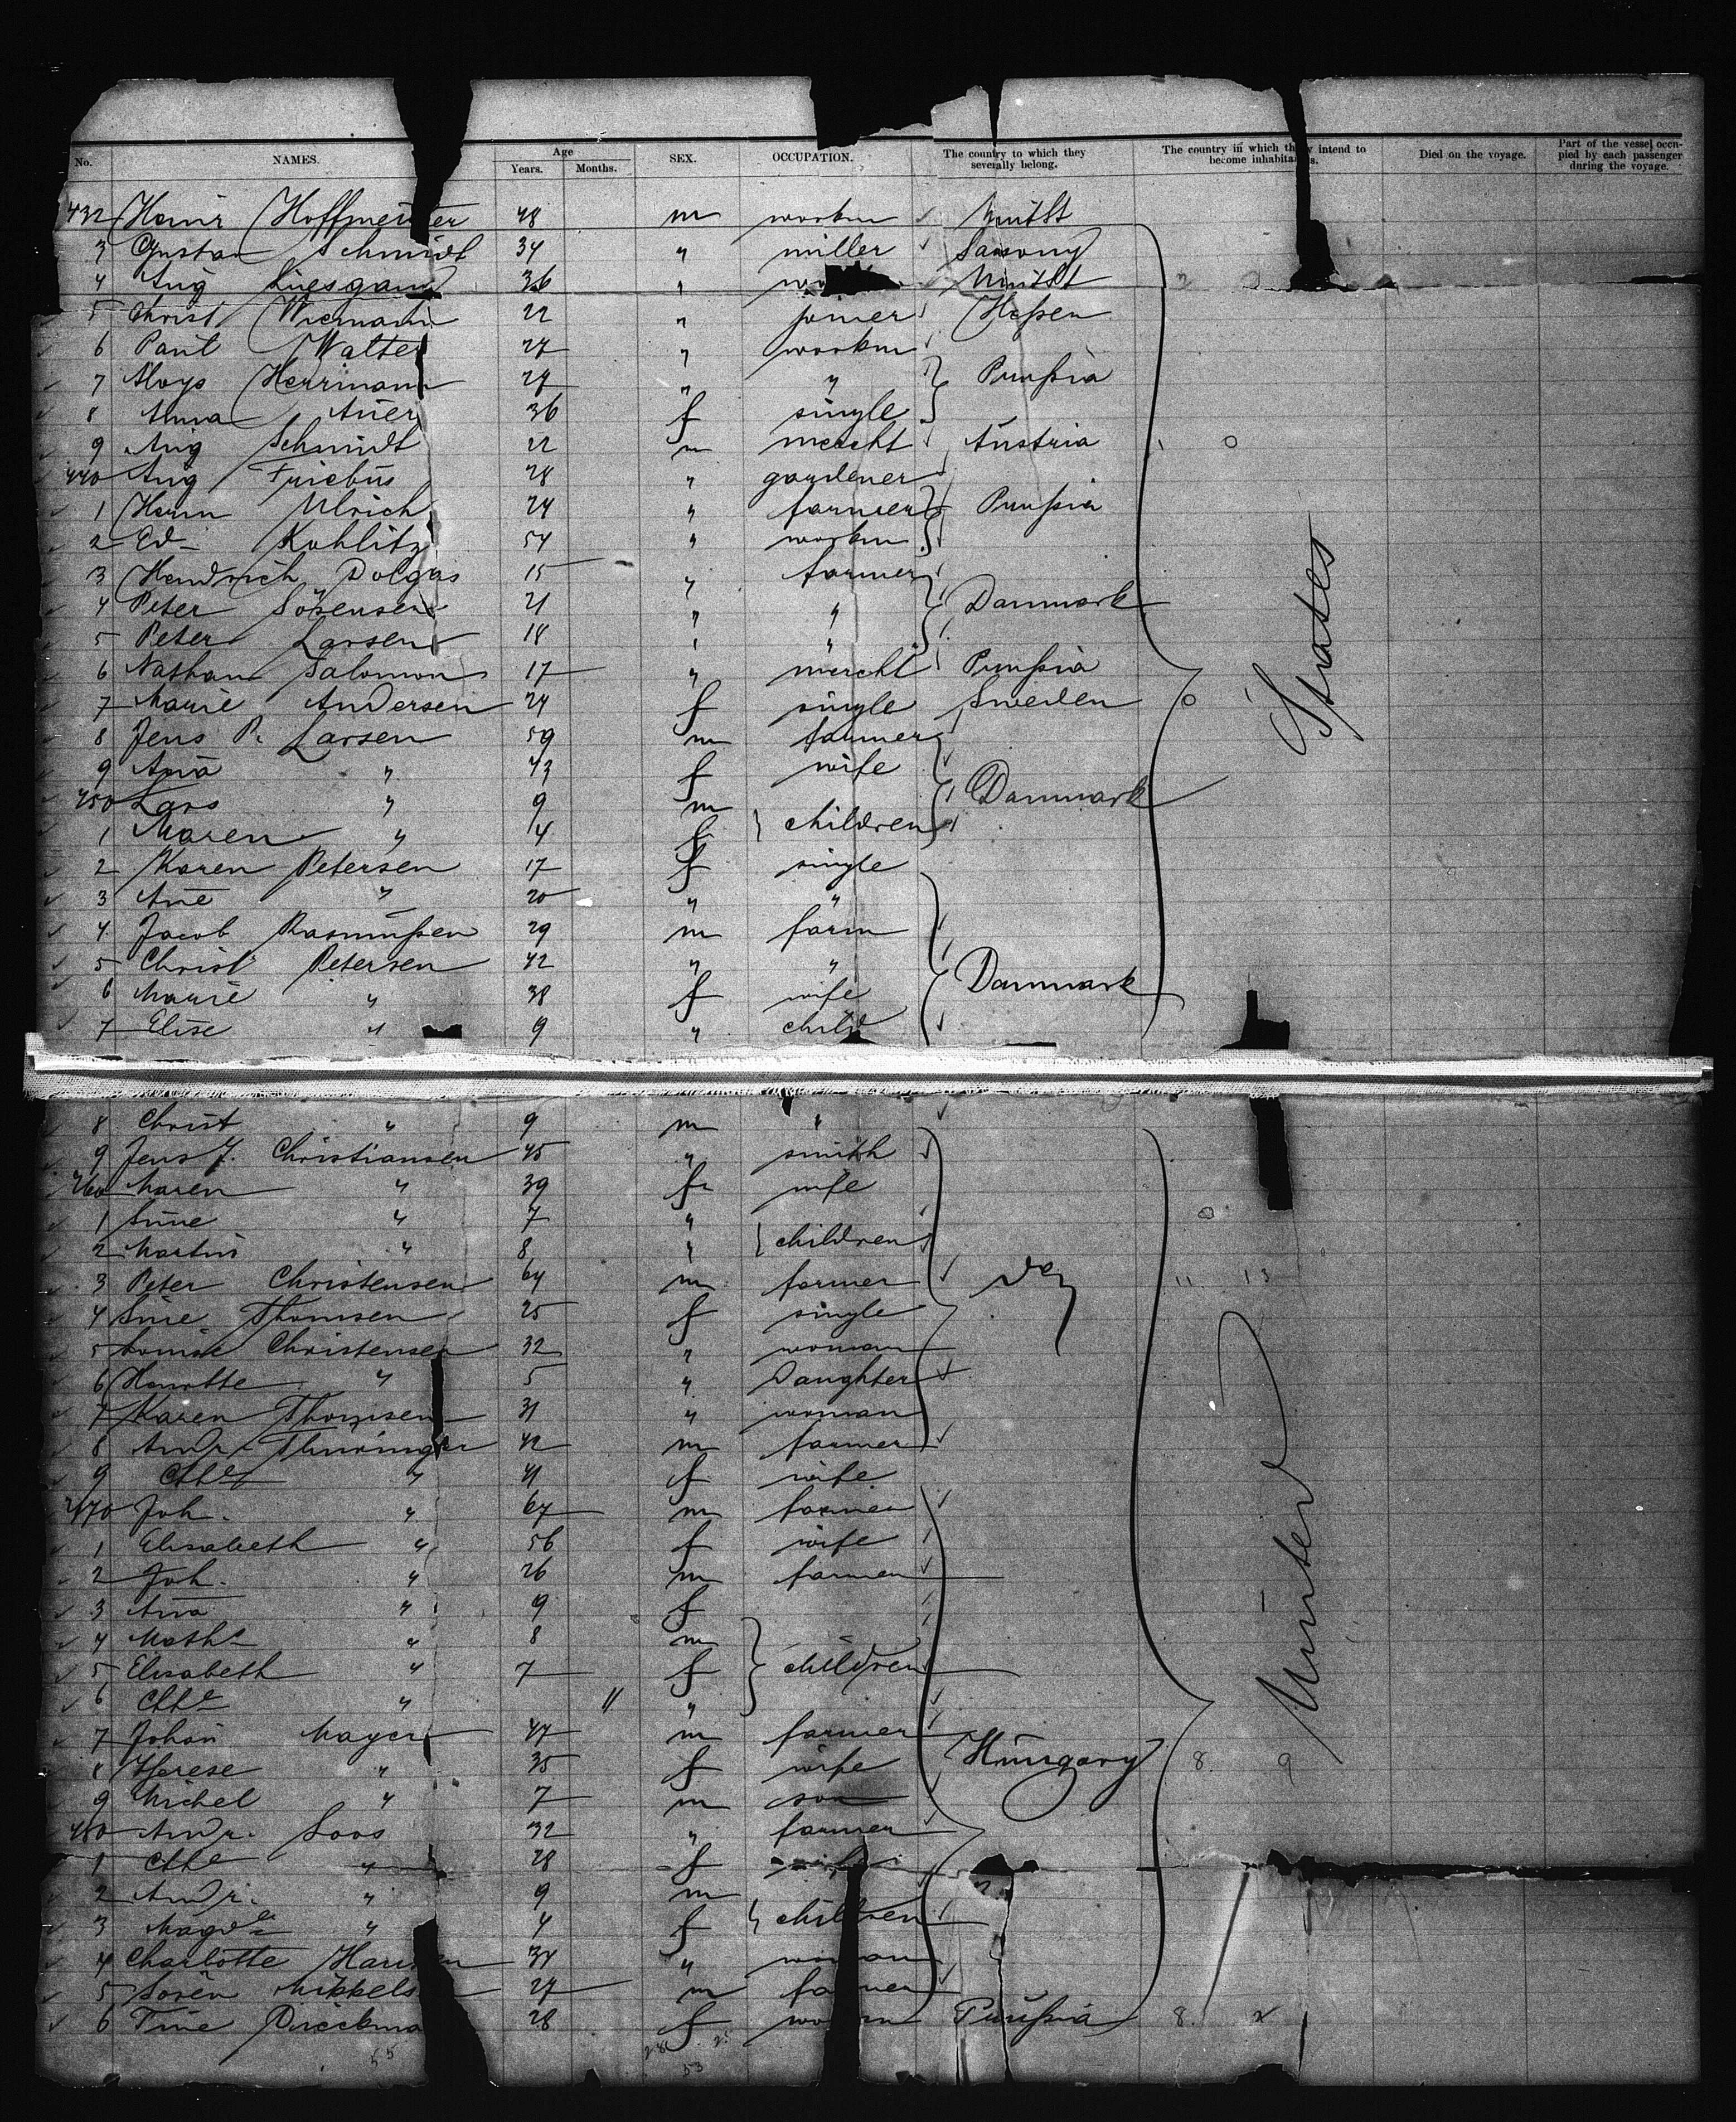 No. NAMES. Age Years. Months. SEX. OCCUPATION. The country to which they severally belong. The country in which they intend to become inhabitants. Died on the voyage. Part of the vessel occupied by each passenger during the voyage.
432 Heinr Hoffmeister 48 m workm
3 Gustav Schmidt 34 " miller Saxony
4 Aug 36 "
5 Christ Wiemann 22 " joiner Heßen
6 Paul Walter 27 workm
7 Aloys Herrmann 24 " " Preußia
8 Anna Auer 36 f single
9 Aug Schmidt 22 m mercht Austria
440 Aug Friebus 28 " gardener
1 Herm Ulrich 24 " farmer Preußia
2 Ed. Kohlitz 54 " workm
3 Hendrich Dolgas 15 " farmer
4 Peter Sörensen 21 " " Danmark
5 Peter Larsen 18 " "
6 Nathan Salomon 17 " mercht Preußia
7 Marie Andersen 24 f single Sweden
8 Jens P. Larsen 59 m farmer
9 Ana " 43 f wife
450 Lars " 9 m Danmark
1 Maren " 4 f children
2 Karen Petersen 17 f single
3 Ane " 20 " "
4 Jacob Rasmußen 29 m farm
5 Christ Petersen 42 " "
6 Marie " 38 f wife Danmark
7 Elise " 9 " child
8 Christ " 9 m "
9 Jens J. Christiansen 45 " smith
460 Maren " 39 f wife
1 Sine " 7 "
2 Martin " 8 " children
3 Peter Christensen 64 m farmer do 11 13
4 Sine Thomsen 25 f single
5 Louise Christensen 32 " woman
6 Henrtte " 5 " Daughter
7 Karen Thomsen 31 " woman
8 Andr. Thüringer 42 m farmer
9 Cthe " 41 f wife
470 Joh. " 67 m farmer
1 Elisabeth " 56 f wife
2 Joh. " 26 m farmer
3 Ana " 9 f
4 Mths " 8 m
5 Elisabeth " 7 f children
6 Cthe " 11 "
7 Johan Mayer 47 m farmer
8 Therese " 35 f wife Hungary 8 9
9 Michel " 7 m son
480 Andr. Soos 32 " farmer
1 Cthe " 28 f wife
2 Andr. " 9 m
3 Magdl " 4 f children
4 Charlotte Hansen 34 " woman
5 Sören Mikkels 27 m farmer
6 Tine 28 f woman Preußia 8 2
55 28 25
53
United States